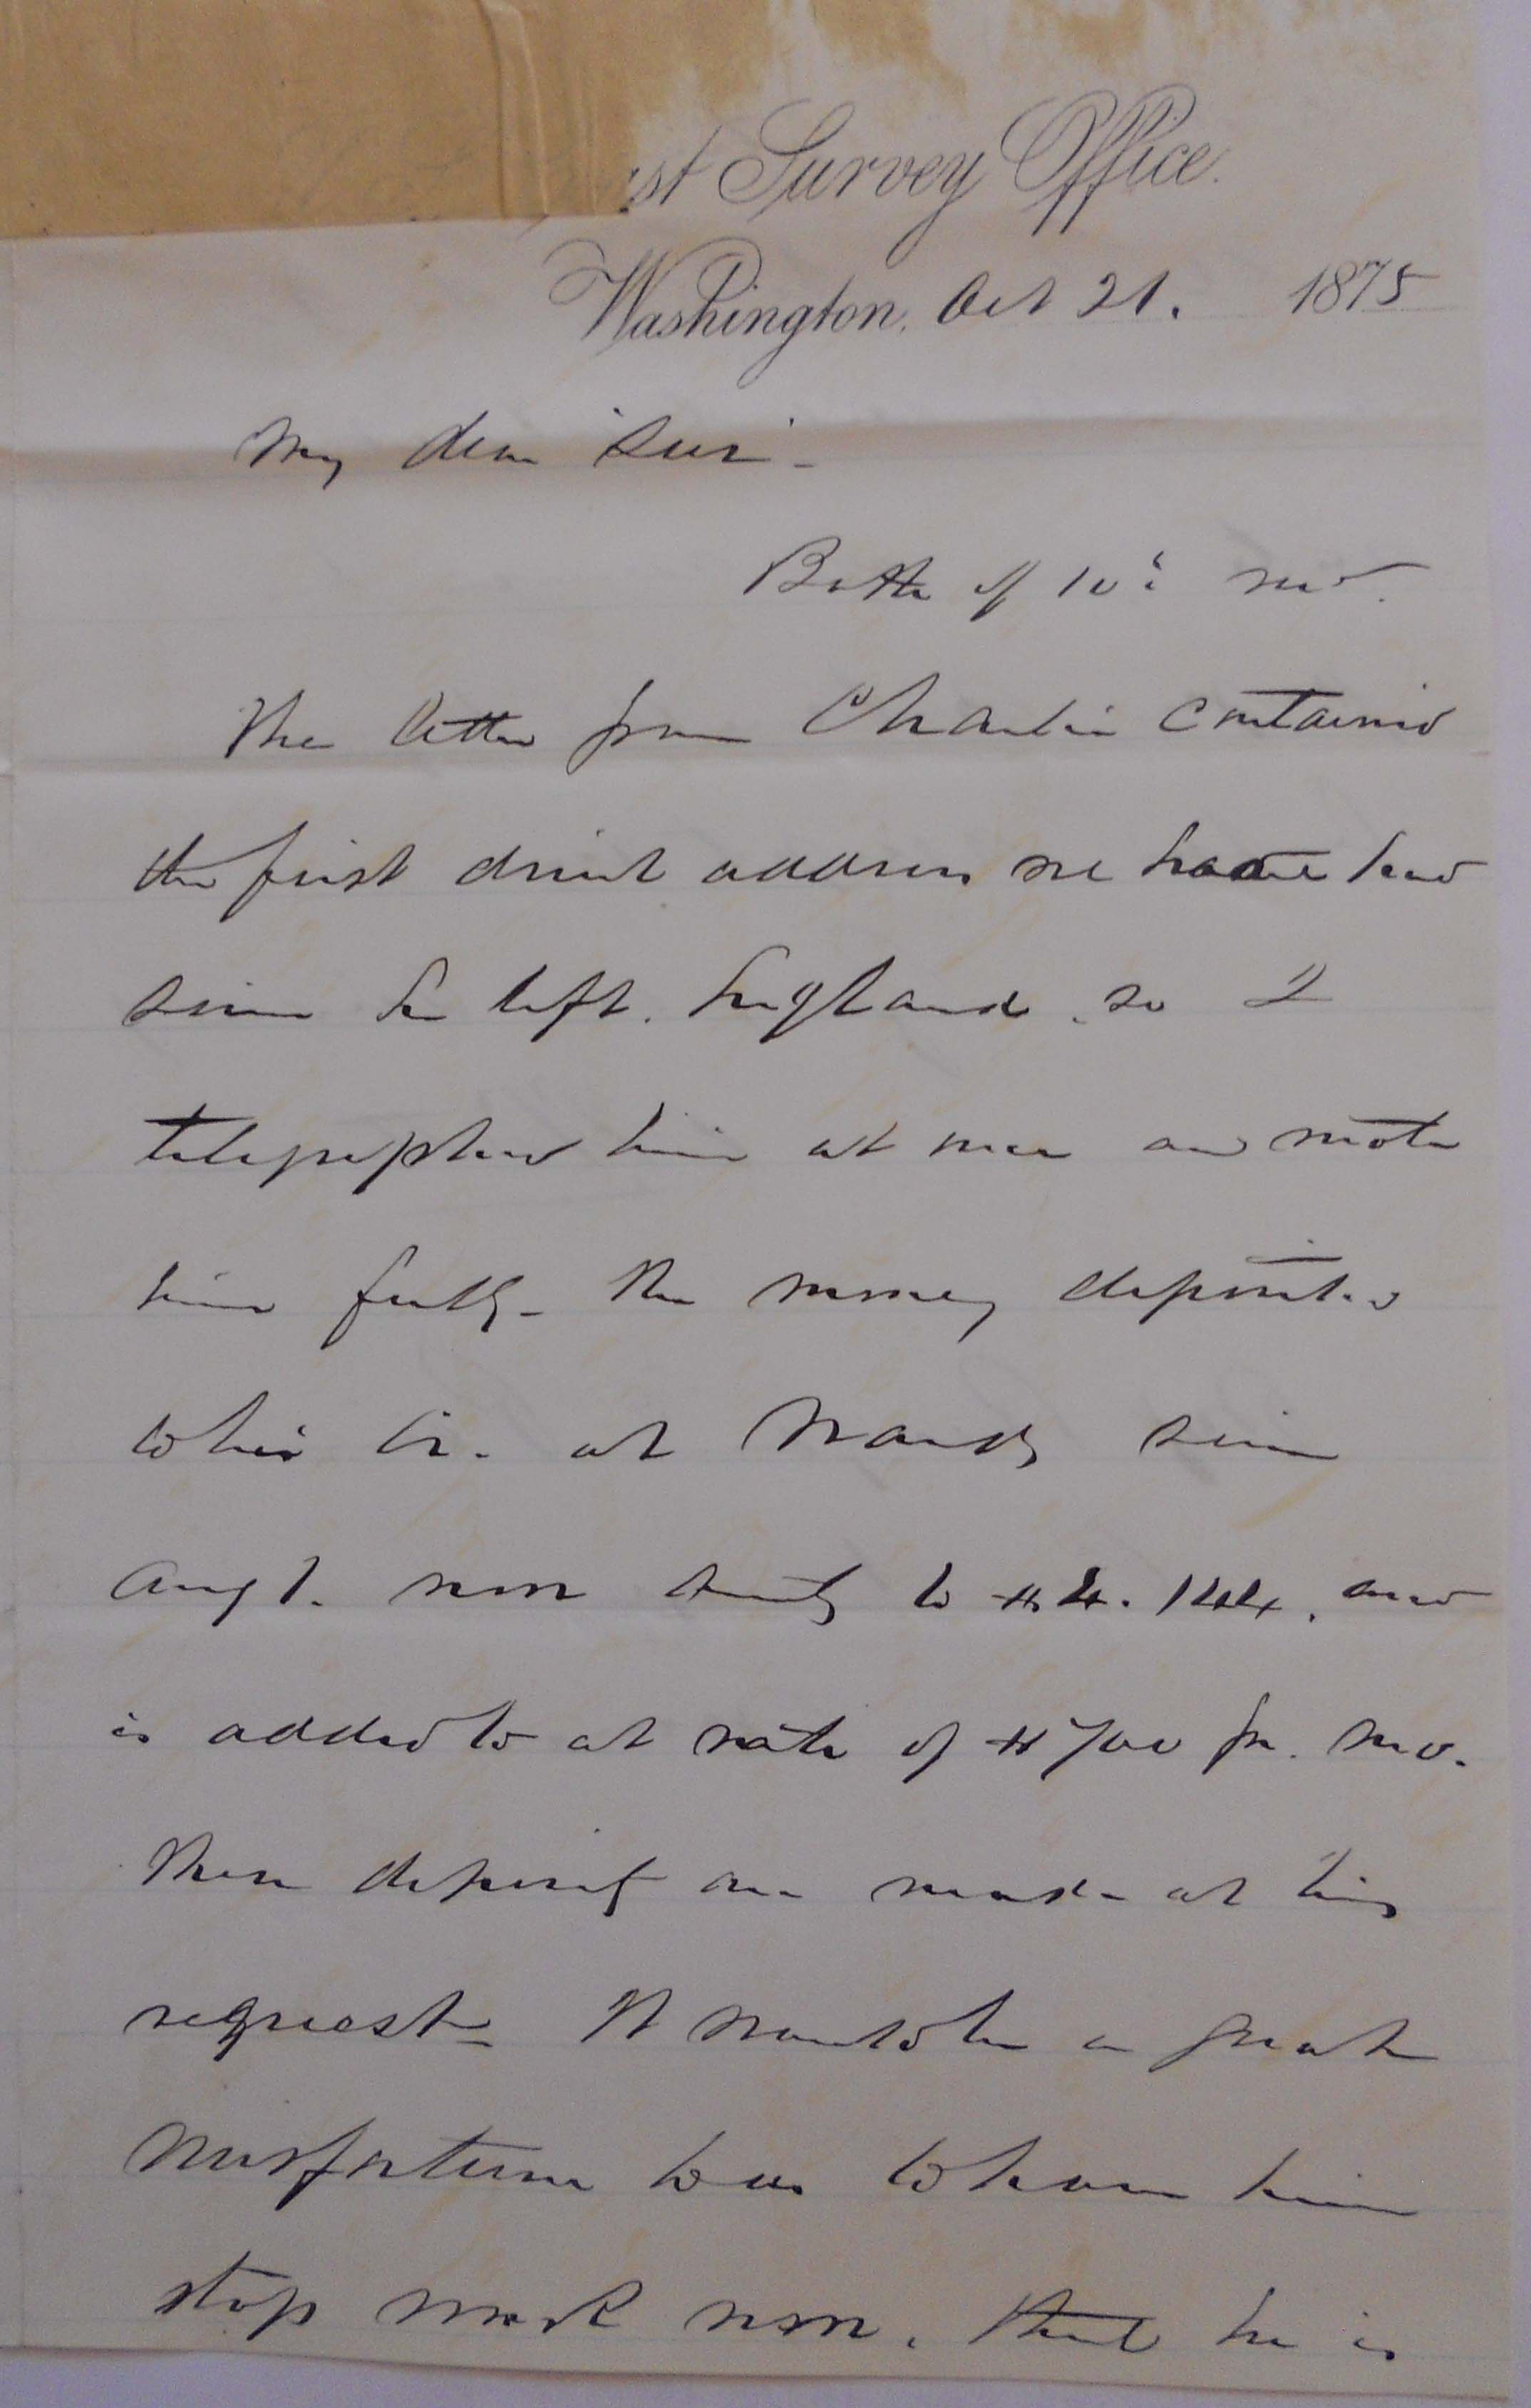 st Survey Office.
Washington, Oct 21. 1875
My dear Sir -
Both of 10th recd.
The letter from Charlie contained
the first direct address we have had
since he left England, so I
telegraphed him at once and wrote
him fully - The money deposited
to his Cr. at
since
Augt. now to $4.144, and
is added to at rate of $700 pr. mo.
These deposits are made at his
request - It would be a great
misfortune to us to have him
stop work now, that he is